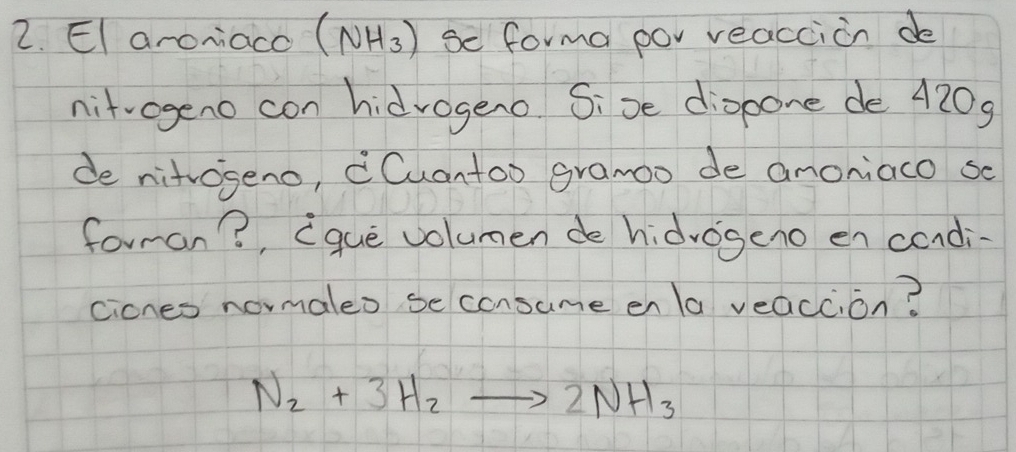 2. El amoniaco (NH₃) se forma por reacción de
nitrogeno con hidrogeno. Si se dispone de 420g
de nitrógeno, ¿Cuantos gramos de amoniaco se
forman?, ¿qué volumen de hidrógeno en condi-
ciones normales se consume en la reacción?
N₂ + 3H₂ → 2NH₃